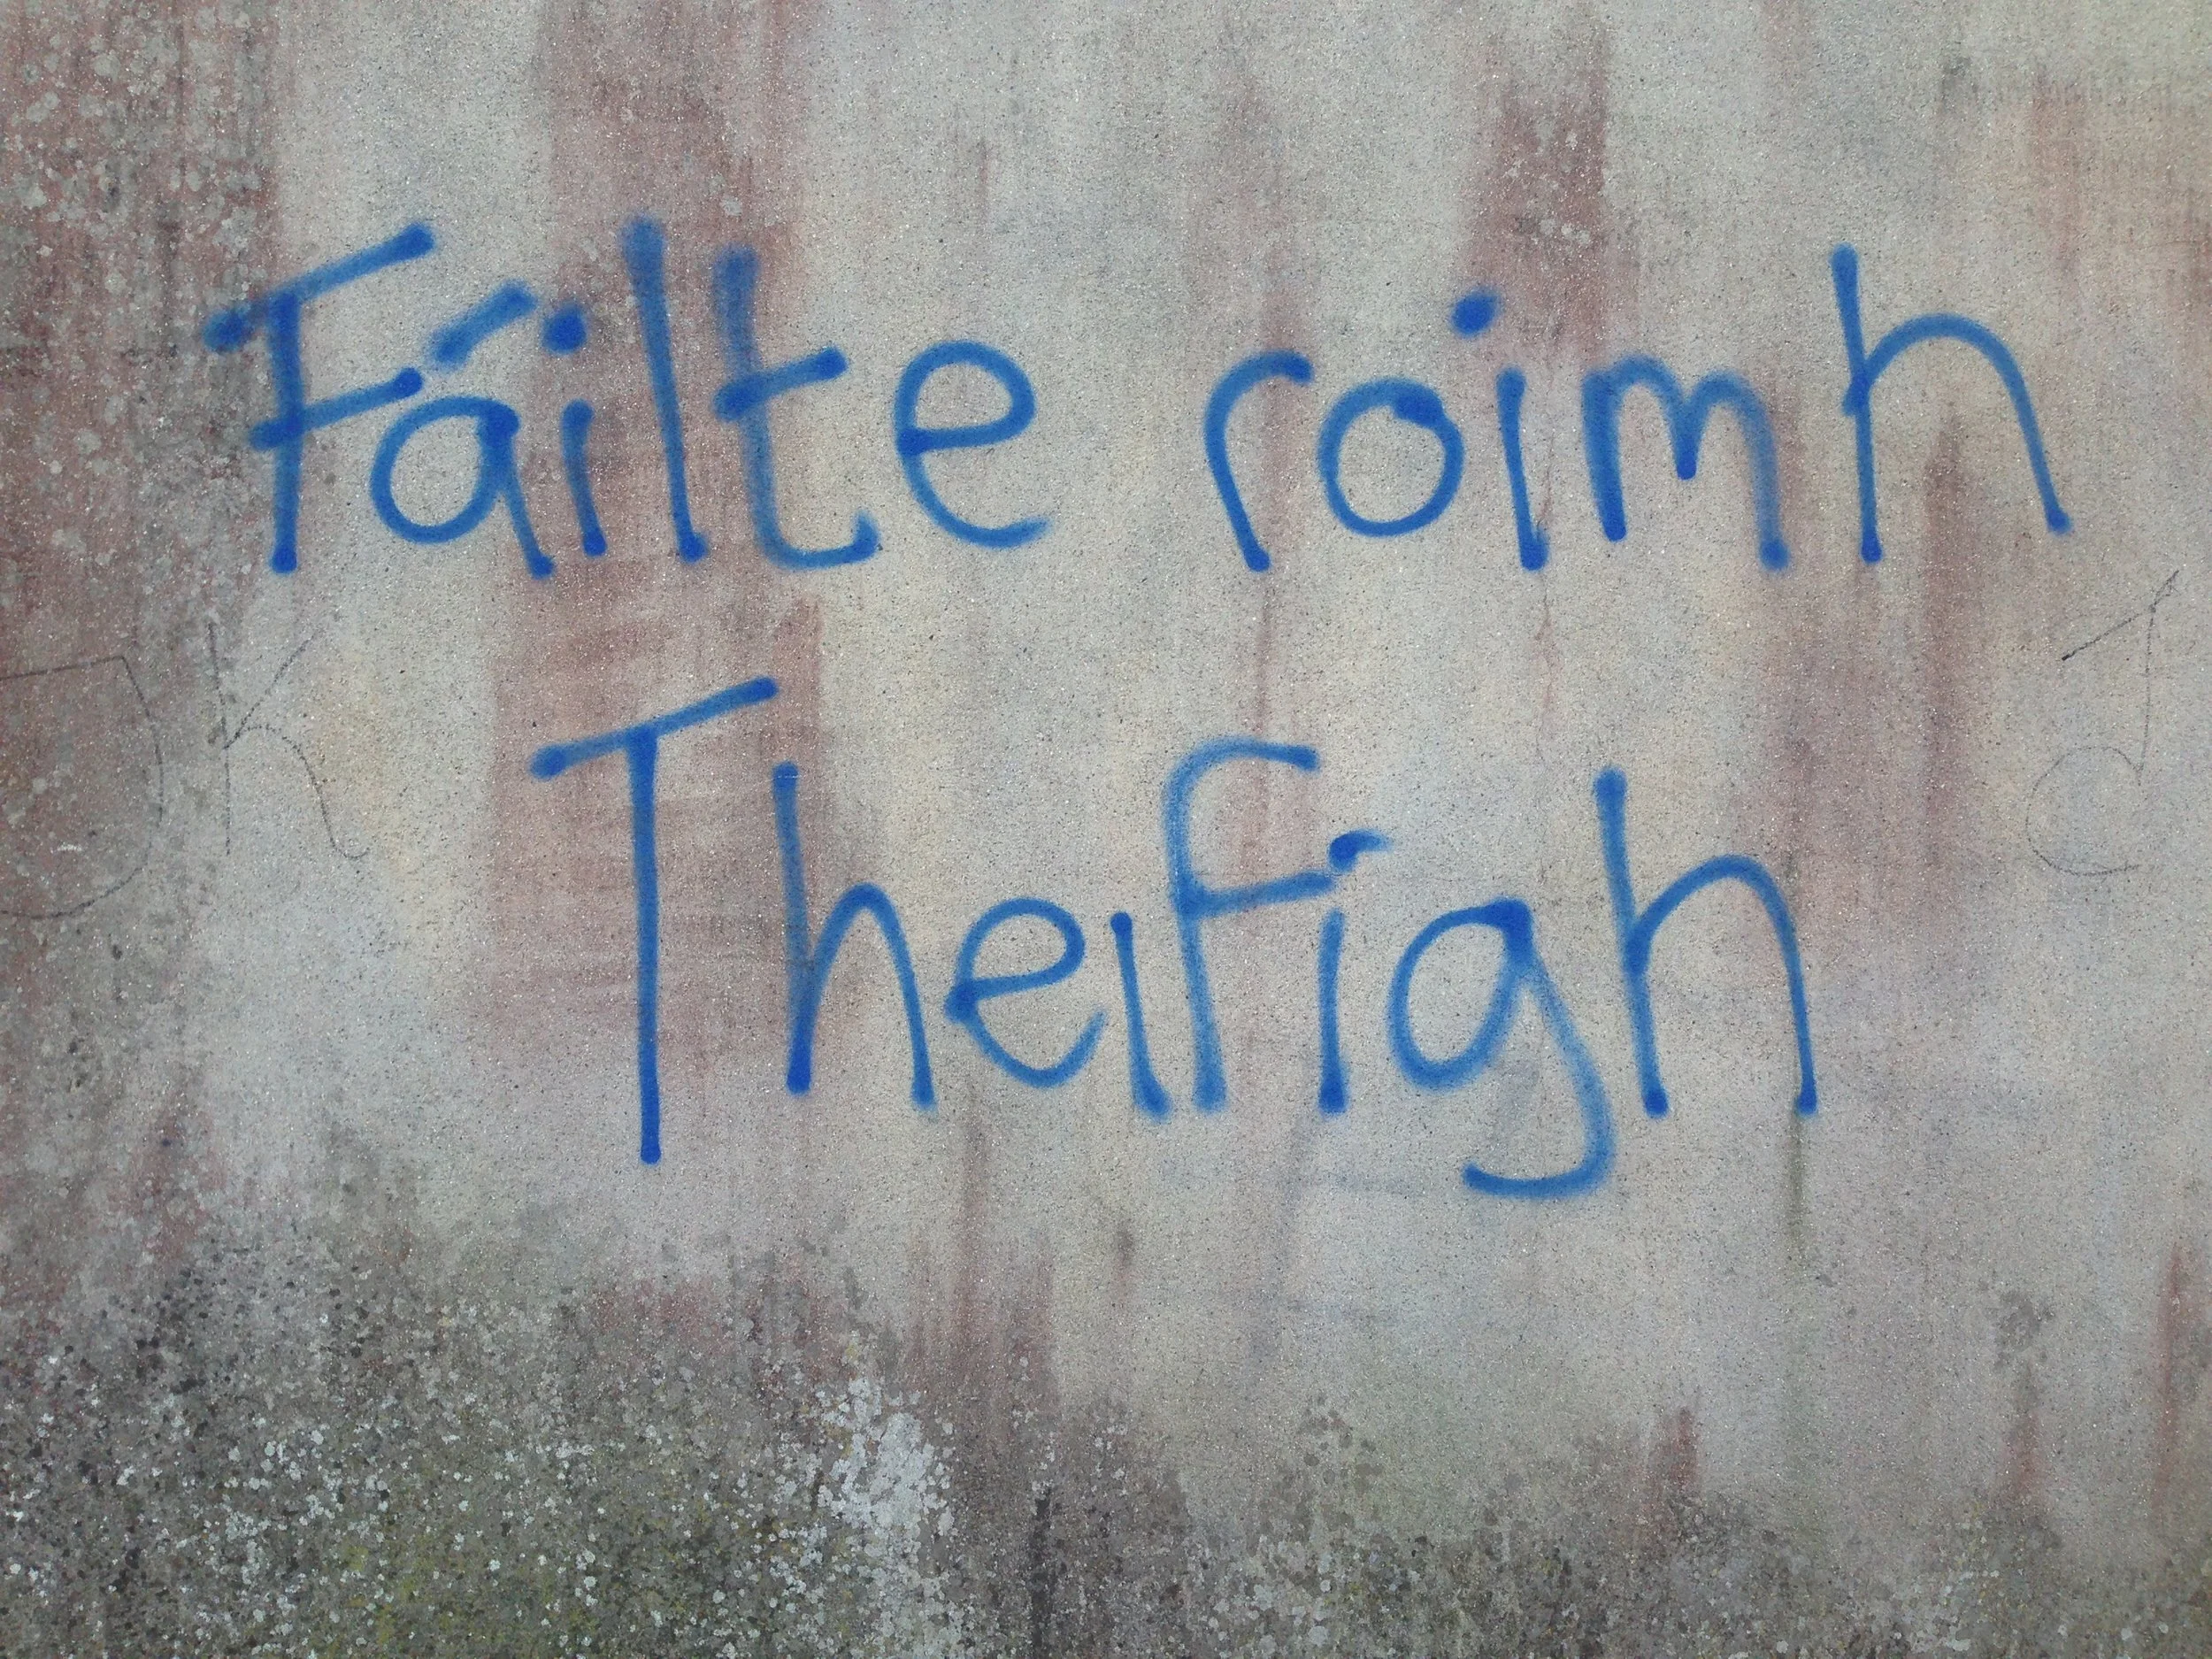 Fáilte roimh
Theifigh
JK